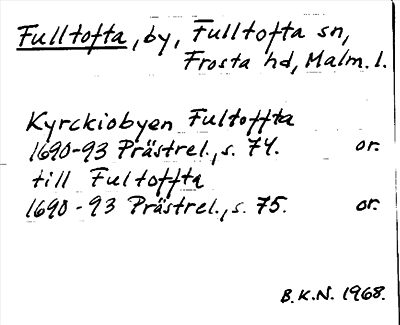 Fulltofta, by, Fulltofta sn,
Frosta hd, Malm. l.
Kyrckiobyen Fultoffta
1690-93 Prästrel., s. 74. or.
till Fultoffta
1690-93 Prästrel., s. 75. or.
B.K.N. 1968.